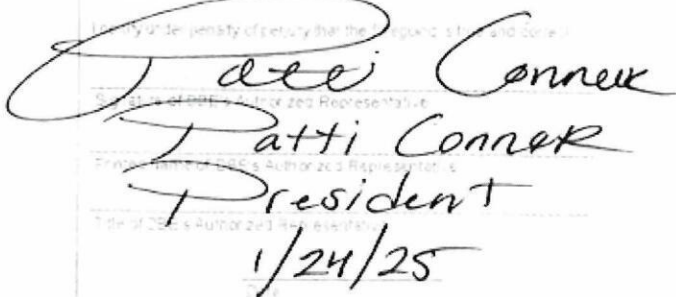 I certify under penalty of perjury that the foregoing is true and correct.
Patti Conner
Signature of DBE's Authorized Representative
Patti Conner
Printed Name of DBE's Authorized Representative
President
Title of DBE's Authorized Representative
1/24/25
Date